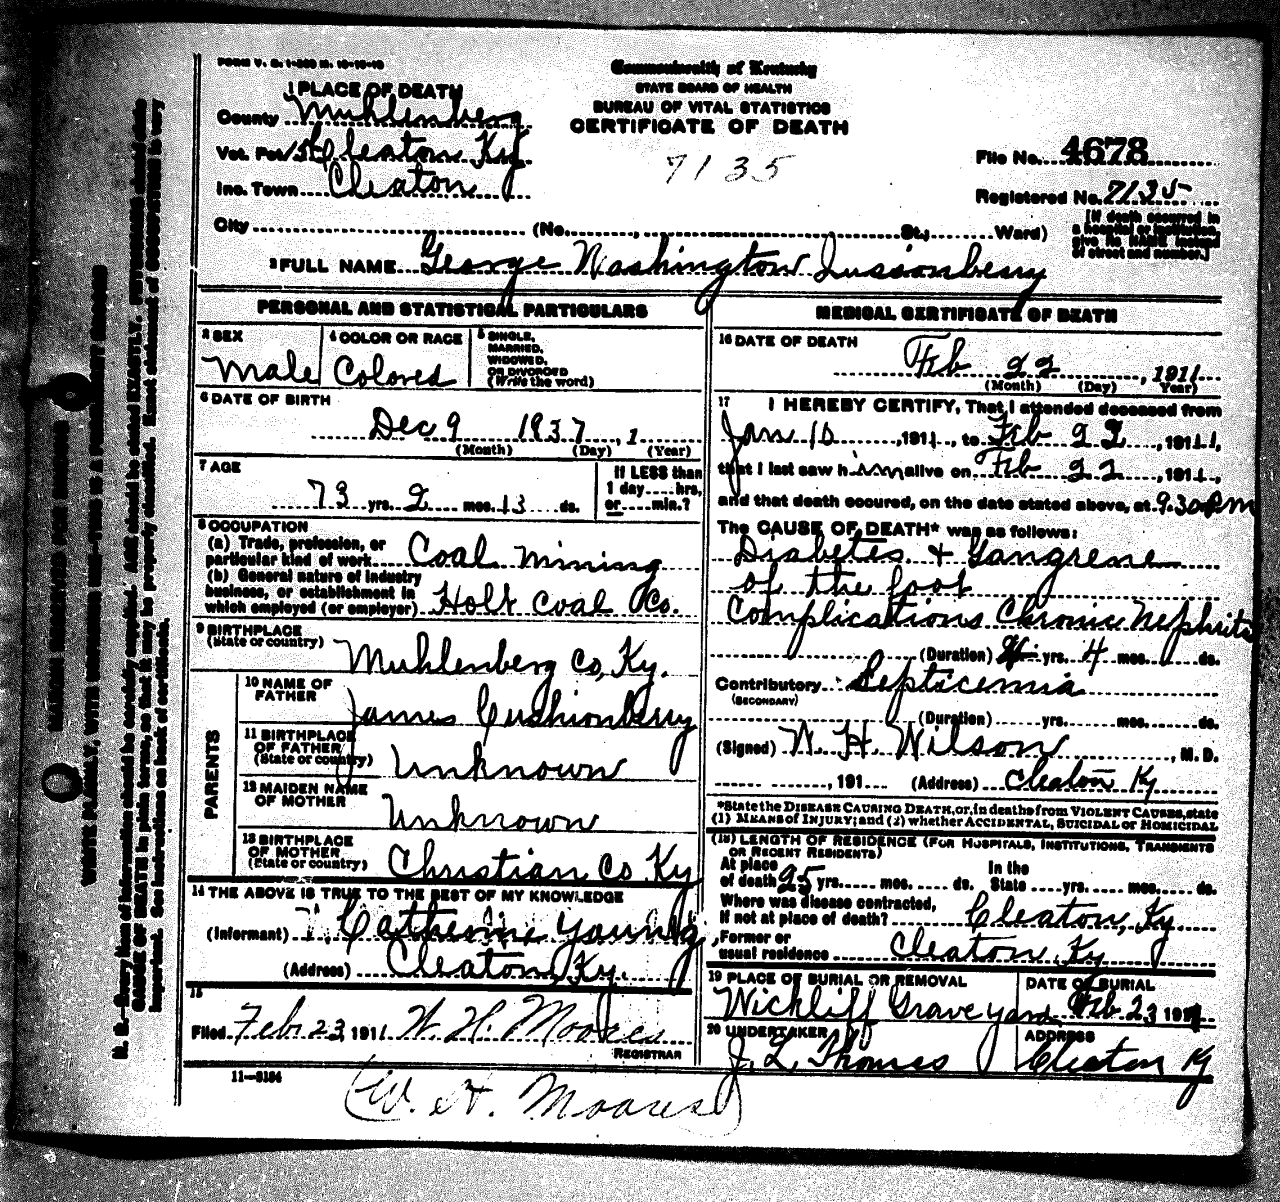 FORM V. S. 1-
Commonwealth of Kentucky
STATE BOARD OF HEALTH
BUREAU OF VITAL STATISTICS
CERTIFICATE OF DEATH
7135
1 PLACE OF DEATH
County Muhlenberg
Vot. Pct. Cleaton Ky
Inc. Town Cleaton
File No. 4678
Registered No. 7135
City (No. , St.; Ward)
[If death occurred in a hospital or institution, give its NAME instead of street and number.]
2 FULL NAME George Washington Jussionberry
PERSONAL AND STATISTICAL PARTICULARS
3 SEX
Male
4 COLOR OR RACE
Colored
5 SINGLE, MARRIED, WIDOWED, OR DIVORCED
(Write the word)
6 DATE OF BIRTH
Dec 9 1837, 1
(Month) (Day) (Year)
7 AGE
73 yrs. 2 mos. 13 ds.
If LESS than
1 day hrs.
or min.?
8 OCCUPATION
(a) Trade, profession, or
particular kind of work Coal Mining
(b) General nature of industry
business, or establishment in
which employed (or employer) Holt Coal Co.
9 BIRTHPLACE
(State or country) Muhlenberg Co, Ky.
PARENTS
10 NAME OF
FATHER James Cushionberry
11 BIRTHPLACE
OF FATHER
(State or country) Unknown
12 MAIDEN NAME
OF MOTHER Unknown
13 BIRTHPLACE
OF MOTHER
(State or country) Christian Co Ky
14 THE ABOVE IS TRUE TO THE BEST OF MY KNOWLEDGE
(Informant) Catherine Young
(Address) Cleaton, Ky.
15
Filed Feb 23, 1911 W. H. Moores
REGISTRAR
11-3184
W. H. Moores
MEDICAL CERTIFICATE OF DEATH
16 DATE OF DEATH
Feb 22, 1911
(Month) (Day) Year)
17 I HEREBY CERTIFY, That I attended deceased from
Jan 10, 1911, to Feb 22, 1911,
that I last saw him alive on Feb 22, 1911,
and that death occured, on the date stated above, at 9.30 P.M
The CAUSE OF DEATH* was as follows:
Diabetes + Gangrene
of the foot
Complications Chronic Nephritis
(Duration) yrs. 4 mos. ds.
Contributory Septicemia
(SECONDARY)
(Duration) yrs. mos. ds.
(Signed) W. H. Wilson, M. D.
, 191 (Address) Cleaton Ky
*State the DISEASE CAUSING DEATH, or, in deaths from VIOLENT CAUSES, state
(1) MEANS of INJURY; and (2) whether ACCIDENTAL, SUICIDAL or HOMICIDAL
(18) LENGTH OF RESIDENCE (FOR HOSPITALS, INSTITUTIONS, TRANSIENTS
OR RECENT RESIDENTS)
At place In the
of death 25 yrs. mos. ds. State yrs. mos. ds.
Where was disease contracted,
if not at place of death? Cleaton, Ky.
Former or
usual residence Cleaton Ky
19 PLACE OF BURIAL OR REMOVAL
Wickliff Graveyard
DATE OF BURIAL
Feb 23 1911
20 UNDERTAKER
J. L. Thomas
ADDRESS
Cleaton Ky
MARGIN RESERVED FOR BINDING
WRITE PLAINLY, WITH UNFADING INK—THIS IS A PERMANENT RECORD
N. B.—Every item of information should be carefully supplied. AGE should be stated EXACTLY. PHYSICIANS should state
CAUSE OF DEATH in plain terms, so that it may be properly classified. Exact statement of OCCUPATION is very
important. See instructions on back of certificate.